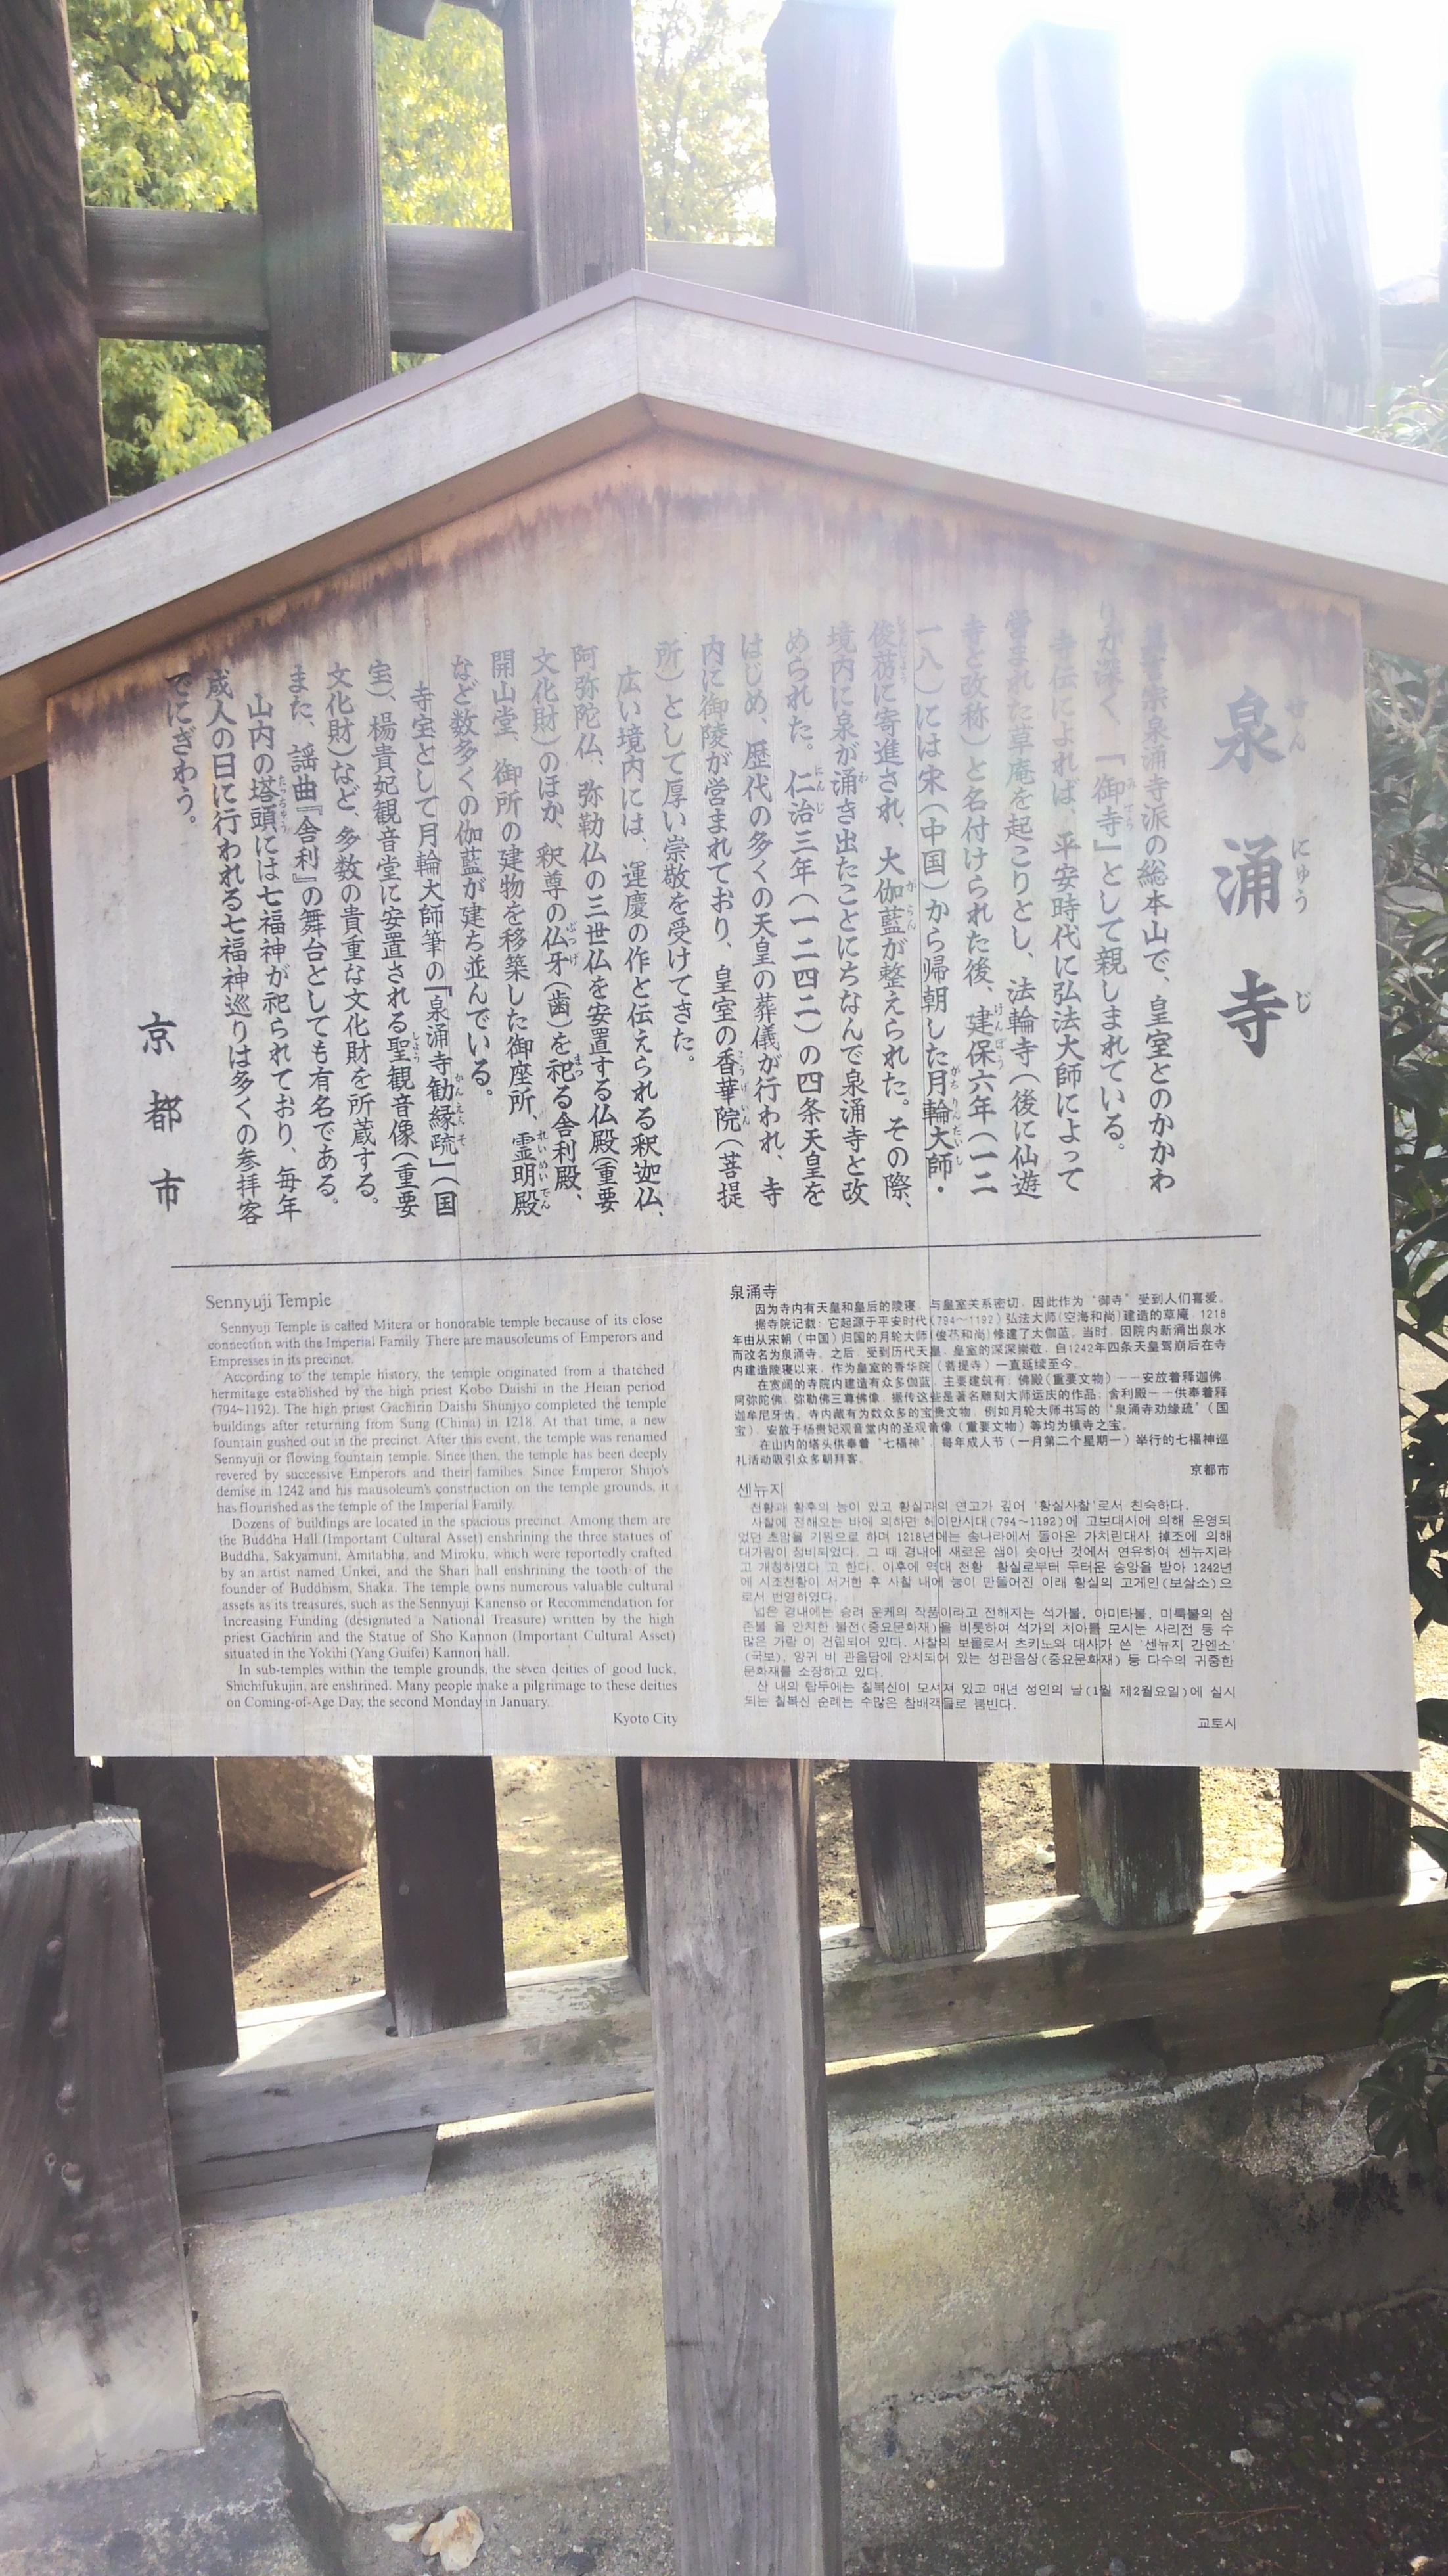 泉涌寺
せんにゅうじ
真言宗泉涌寺派の総本山で、皇室とのかかわ
りが深く、「御寺」として親しまれている。
寺伝によれば、平安時代に弘法大師によって
営まれた草庵を起こりとし、法輪寺(後に仙遊
寺と改称)と名付けられた後、建保六年(一二
一八)には宋(中国)から帰朝した月輪大師・
俊芿に寄進され、大伽藍が整えられた。その際、
境内に泉が涌き出たことにちなんで泉涌寺と改
められた。仁治三年(一二四二)の四条天皇を
はじめ、歴代の多くの天皇の葬儀が行われ、寺
内に御陵が営まれており、皇室の香華院(菩提
所)として厚い崇敬を受けてきた。
広い境内には、運慶の作と伝えられる釈迦仏、
阿弥陀仏、弥勒仏の三世仏を安置する仏殿(重要
文化財)のほか、釈尊の仏牙(歯)を祀る舎利殿、
開山堂、御所の建物を移築した御座所、霊明殿
など数多くの伽藍が建ち並んでいる。
寺宝として月輪大師筆の「泉涌寺勧縁疏」(国
宝)、楊貴妃観音堂に安置される聖観音像(重要
文化財)など、多数の貴重な文化財を所蔵する。
また、謡曲『舎利』の舞台としても有名である。
山内の塔頭には七福神が祀られており、毎年
成人の日に行われる七福神巡りは多くの参拝客
でにぎわう。
京都市
Sennyuji Temple
Sennyuji Temple is called Mitera or honorable temple because of its close
connection with the Imperial Family. There are mausoleums of Emperors and
Empresses in its precinct.
According to the temple history, the temple originated from a thatched
hermitage established by the high priest Kobo Daishi in the Heian period
(794~1192). The high priest Gachirin Daishi Shunjyo completed the temple
buildings after returning from Sung (China) in 1218. At that time, a new
fountain gushed out in the precinct. After this event, the temple was renamed
Sennyuji or flowing fountain temple. Since then, the temple has been deeply
revered by successive Emperors and their families. Since Emperor Shijo's
demise in 1242 and his mausoleum's construction on the temple grounds, it
has flourished as the temple of the Imperial Family.
Dozens of buildings are located in the spacious precinct. Among them are
the Buddha Hall (Important Cultural Asset) enshrining the three statues of
Buddha, Sakyamuni, Amitabha, and Miroku, which were reportedly crafted
by an artist named Unkei, and the Shari hall enshrining the tooth of the
founder of Buddhism, Shaka. The temple owns numerous valuable cultural
assets as its treasures, such as the Sennyuji Kanenso or Recommendation for
Increasing Funding (designated a National Treasure) written by the high
priest Gachirin and the Statue of Sho Kannon (Important Cultural Asset)
situated in the Yokihi (Yang Guifei) Kannon hall.
In sub-temples within the temple grounds, the seven deities of good luck,
Shichifukujin, are enshrined. Many people make a pilgrimage to these deities
on Coming-of-Age Day, the second Monday in January.
Kyoto City
泉涌寺
因为寺内有天皇和皇后的陵寝，与皇室关系密切，因此作为“御寺”受到人们喜爱。
据寺院记载：它起源于平安时代(794～1192)弘法大师(空海和尚)建造的草庵，1218
年由从宋朝（中国）归国的月轮大师(俊芿和尚)修建了大伽蓝。当时，因院内新涌出泉水
而改名为泉涌寺。之后，受到历代天皇、皇室的深深崇敬，自1242年四条天皇驾崩后在寺
内建造陵寝以来，作为皇室的香华院（菩提寺）一直延续至今。
在宽阔的寺院内建造有众多伽蓝，主要建筑有：佛殿（重要文物）——安放着释迦佛，
阿弥陀佛，弥勒佛三尊佛像，据传这些是著名雕刻大师运庆的作品；舍利殿——供奉着释
迦牟尼牙齿。寺内藏有为数众多的宝贵文物，例如月轮大师书写的“泉涌寺劝缘疏”（国
宝），安放于杨贵妃观音堂内的圣观音像（重要文物）等均为镇寺之宝。
在山内的塔头供奉着“七福神”，每年成人节（一月第二个星期一）举行的七福神巡
礼活动吸引众多朝拜客。
京都市
센뉴지
천황과 황후의 능이 있고 황실과의 연고가 깊어 '황실사찰'로서 친숙하다.
사찰에 전해오는 바에 의하면 헤이안시대(794~1192)에 고보대사에 의해 운영되
었던 초암을 기원으로 하며 1218년에는 송나라에서 돌아온 가치린대사 掉조에 의해
대가람이 정비되었다. 그 때 경내에 새로운 샘이 솟아난 것에서 연유하여 센뉴지라
고 개칭하였다 고 한다. 이후에 역대 천황, 황실로부터 두터운 숭앙을 받아 1242년
에 시조천황이 서거한 후 사찰 내에 능이 만들어진 이래 황실의 고게인(보살소)으
로서 번영하였다.
넓은 경내에는 승려 운케의 작품이라고 전해지는 석가불, 아미타불, 미륵불의 삼
존불 을 안치한 불전(중요문화재)을 비롯하여 석가의 치아를 모시는 사리전 등 수
많은 가람 이 건립되어 있다. 사찰의 보물로서 츠키노와 대사가 쓴 '센뉴지 간엔소'
(국보), 양귀 비 관음당에 안치되어 있는 성관음상(중요문화재) 등 다수의 귀중한
문화재를 소장하고 있다.
산 내의 탑두에는 칠복신이 모셔져 있고 매년 성인의 날(1월 제2월요일)에 실시
되는 칠복신 순례는 수많은 참배객들로 붐빈다.
교토시